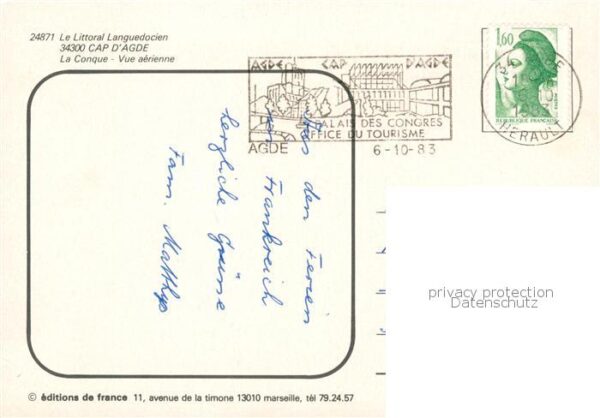 24871 Le Littoral Languedocien
34300 CAP D'AGDE
La Conque - Vue aérienne
AGDE CAP D'AGDE
PALAIS DES CONGRES
OFFICE DU TOURISME
AGDE
6-10-83
1,60
REPUBLIQUE FRANÇAISE
HERAULT
Aus den Ferien
in Frankreich
herzliche Grüsse
Fam. Matthys
privacy protection
Datenschutz
© éditions de france 11, avenue de la timone 13010 marseille, tél 79.24.57